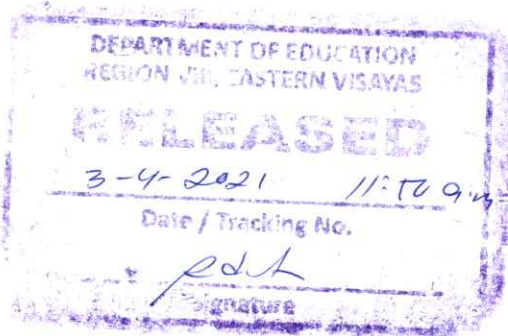 DEPARTMENT OF EDUCATION
REGION VIII, EASTERN VISAYAS
RELEASED
3-4-2021
Date / Tracking No.
Signature